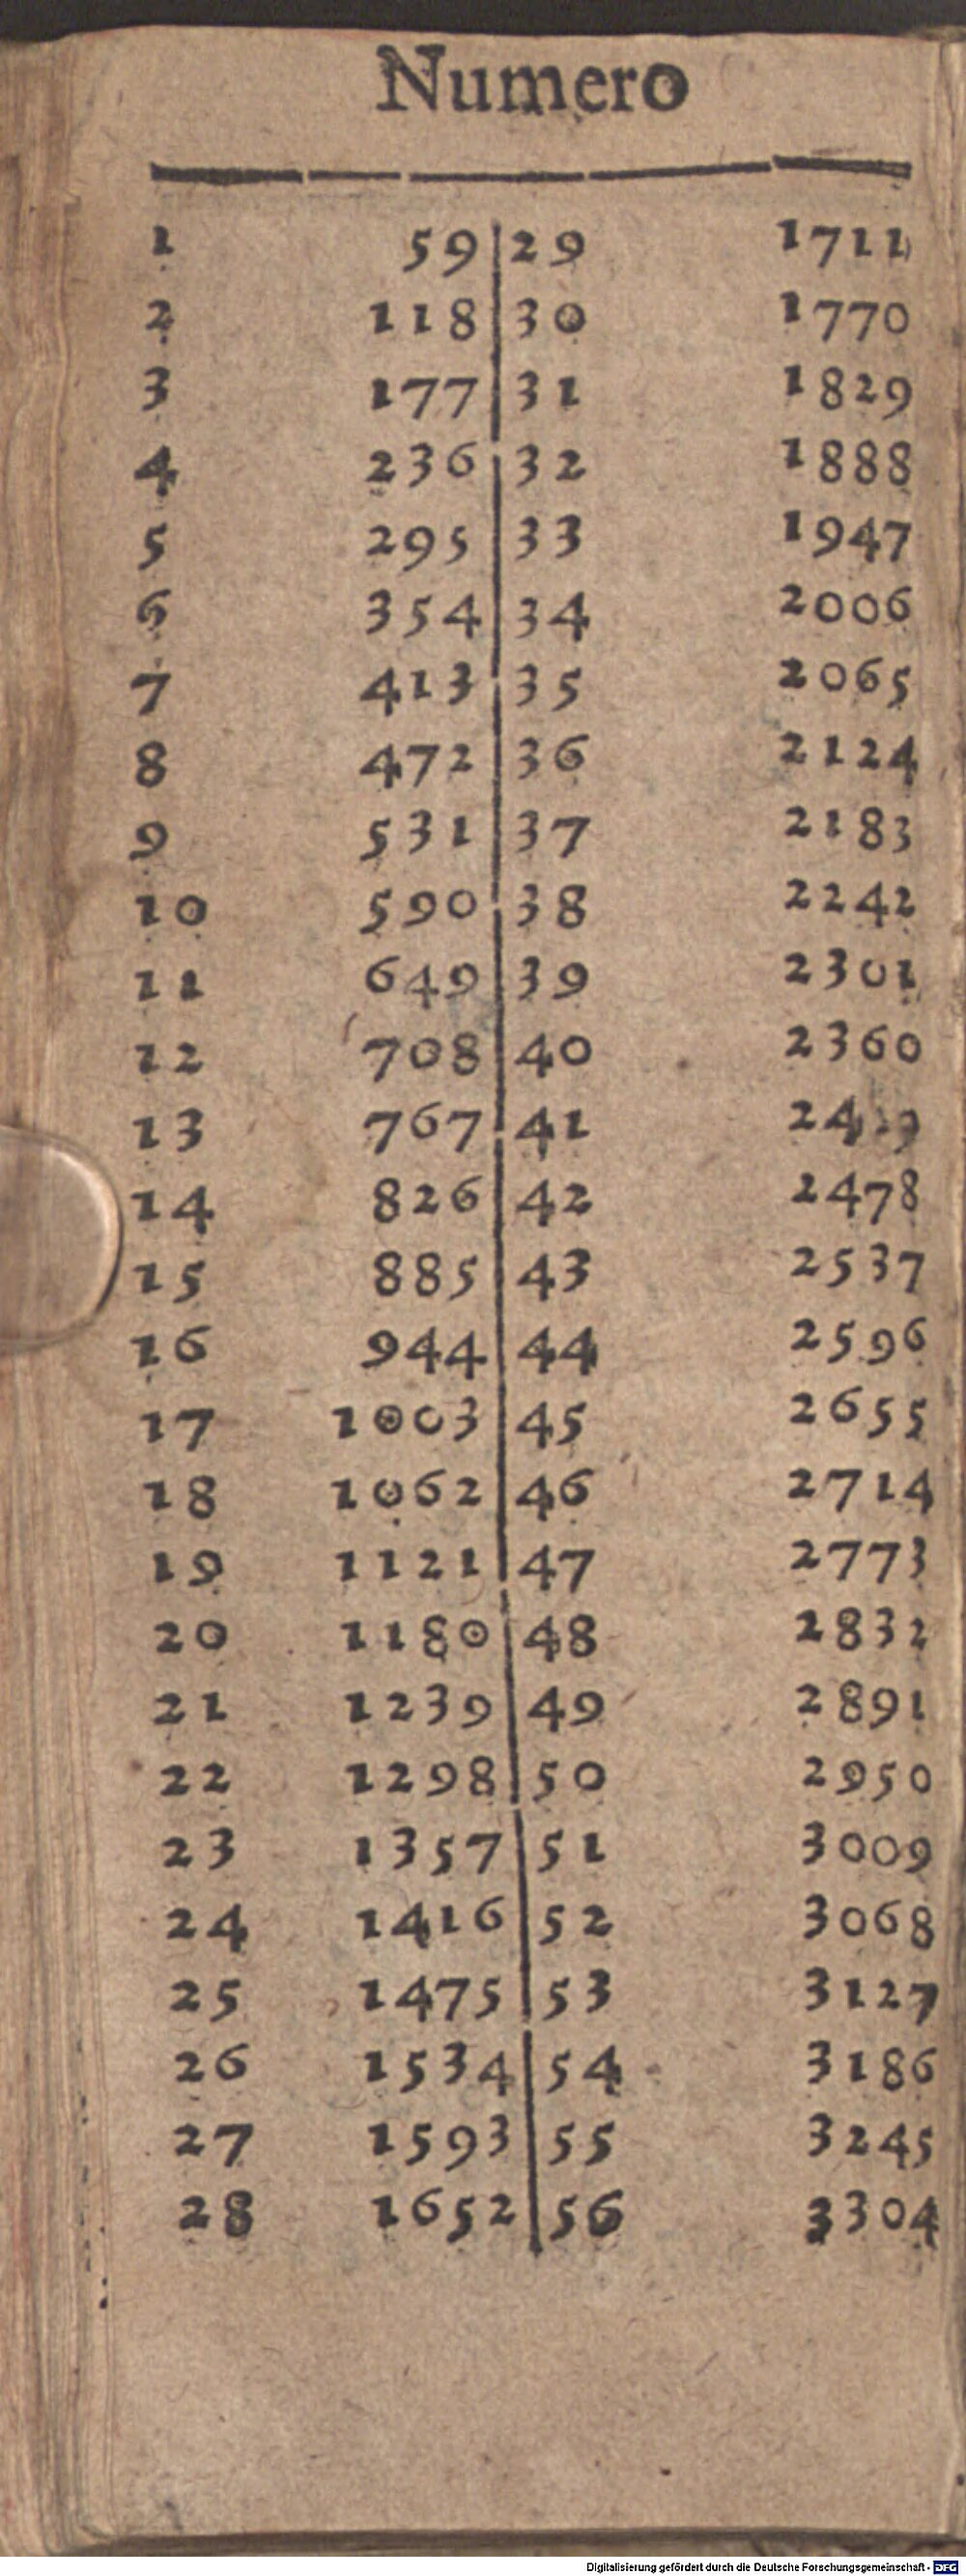 Numero
1 59 29 1711
2 118 30 1770
3 177 31 1829
4 236 32 1888
5 295 33 1947
6 354 34 2006
7 413 35 2065
8 472 36 2124
9 531 37 2183
10 590 38 2242
11 649 39 2301
12 708 40 2360
13 767 41
14 826 42 2478
15 885 43 2537
16 944 44 2596
17 1003 45 2655
18 1062 46 2714
19 1121 47 2773
20 1180 48 2832
21 1239 49 2891
22 1298 50 2950
23 1357 51 3009
24 1416 52 3068
25 1475 53 3127
26 1534 54 3186
27 1593 55 3245
28 1652 56 3304
Digitalisierung gefördert durch die Deutsche Forschungsgemeinschaft - DFG